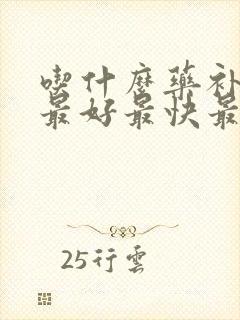 喫什麼藥补
最好最快最
25行雲